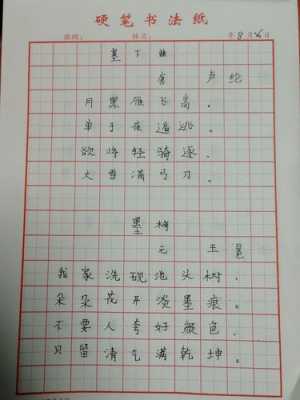 硬笔书法纸
年8月 日
塞下曲
唐 卢纶
月黑雁飞高。
单于夜遁逃。
欲将轻骑逐。
大雪满弓刀。
墨梅
元 王冕
我家洗砚池头树。
朵朵花开淡墨痕。
不要人夸好颜色。
只留清气满乾坤。